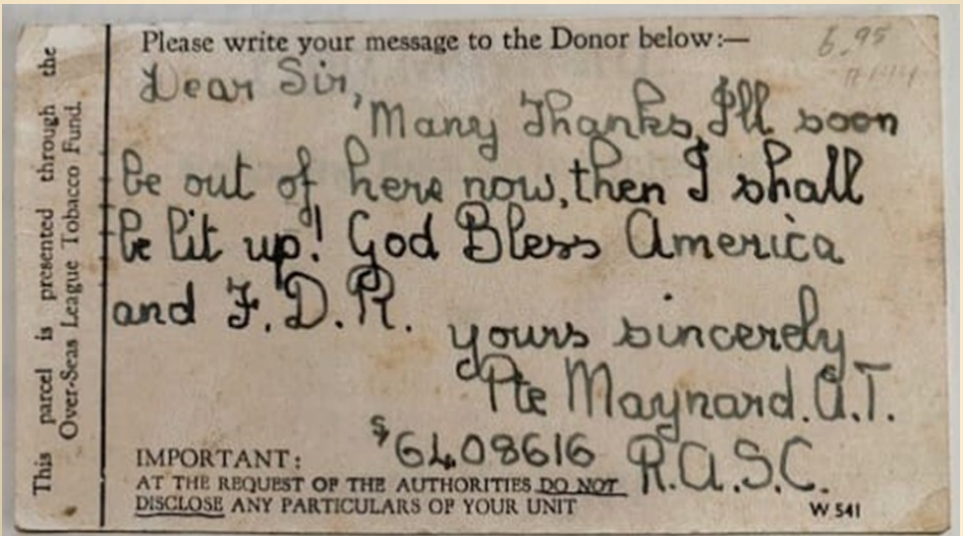 This parcel is presented through the
Over-Seas League Tobacco Fund.
Please write your message to the Donor below:—
6.95
Dear Sir,
Many Thanks, I'll soon
be out of here now, then I shall
be lit up! God Bless America
and F.D.R.
yours sincerely
Pte Maynard. A.T.
S/6408616 R.A.S.C.
IMPORTANT:
AT THE REQUEST OF THE AUTHORITIES DO NOT
DISCLOSE ANY PARTICULARS OF YOUR UNIT
W 541